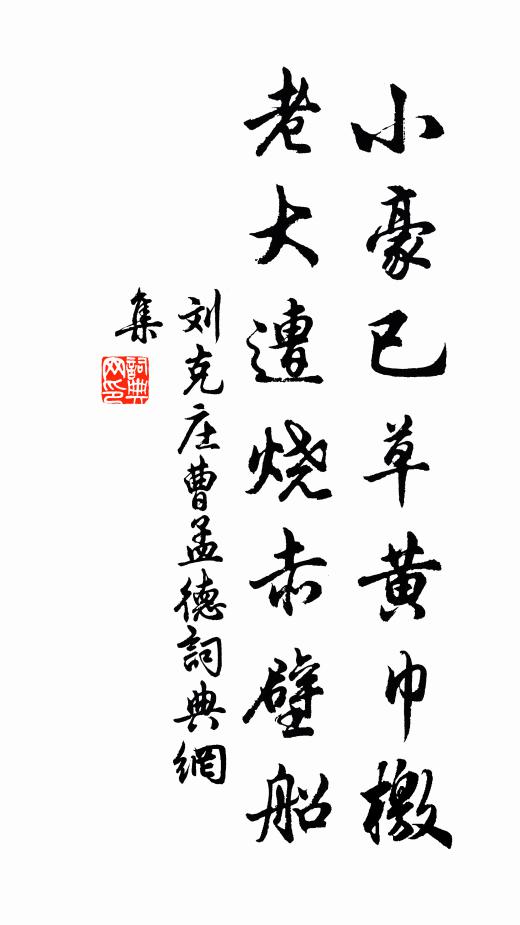 小豪已草黄巾檄
老大遭烧赤壁船
刘克庄曹孟德詞典網
集
詞典网印